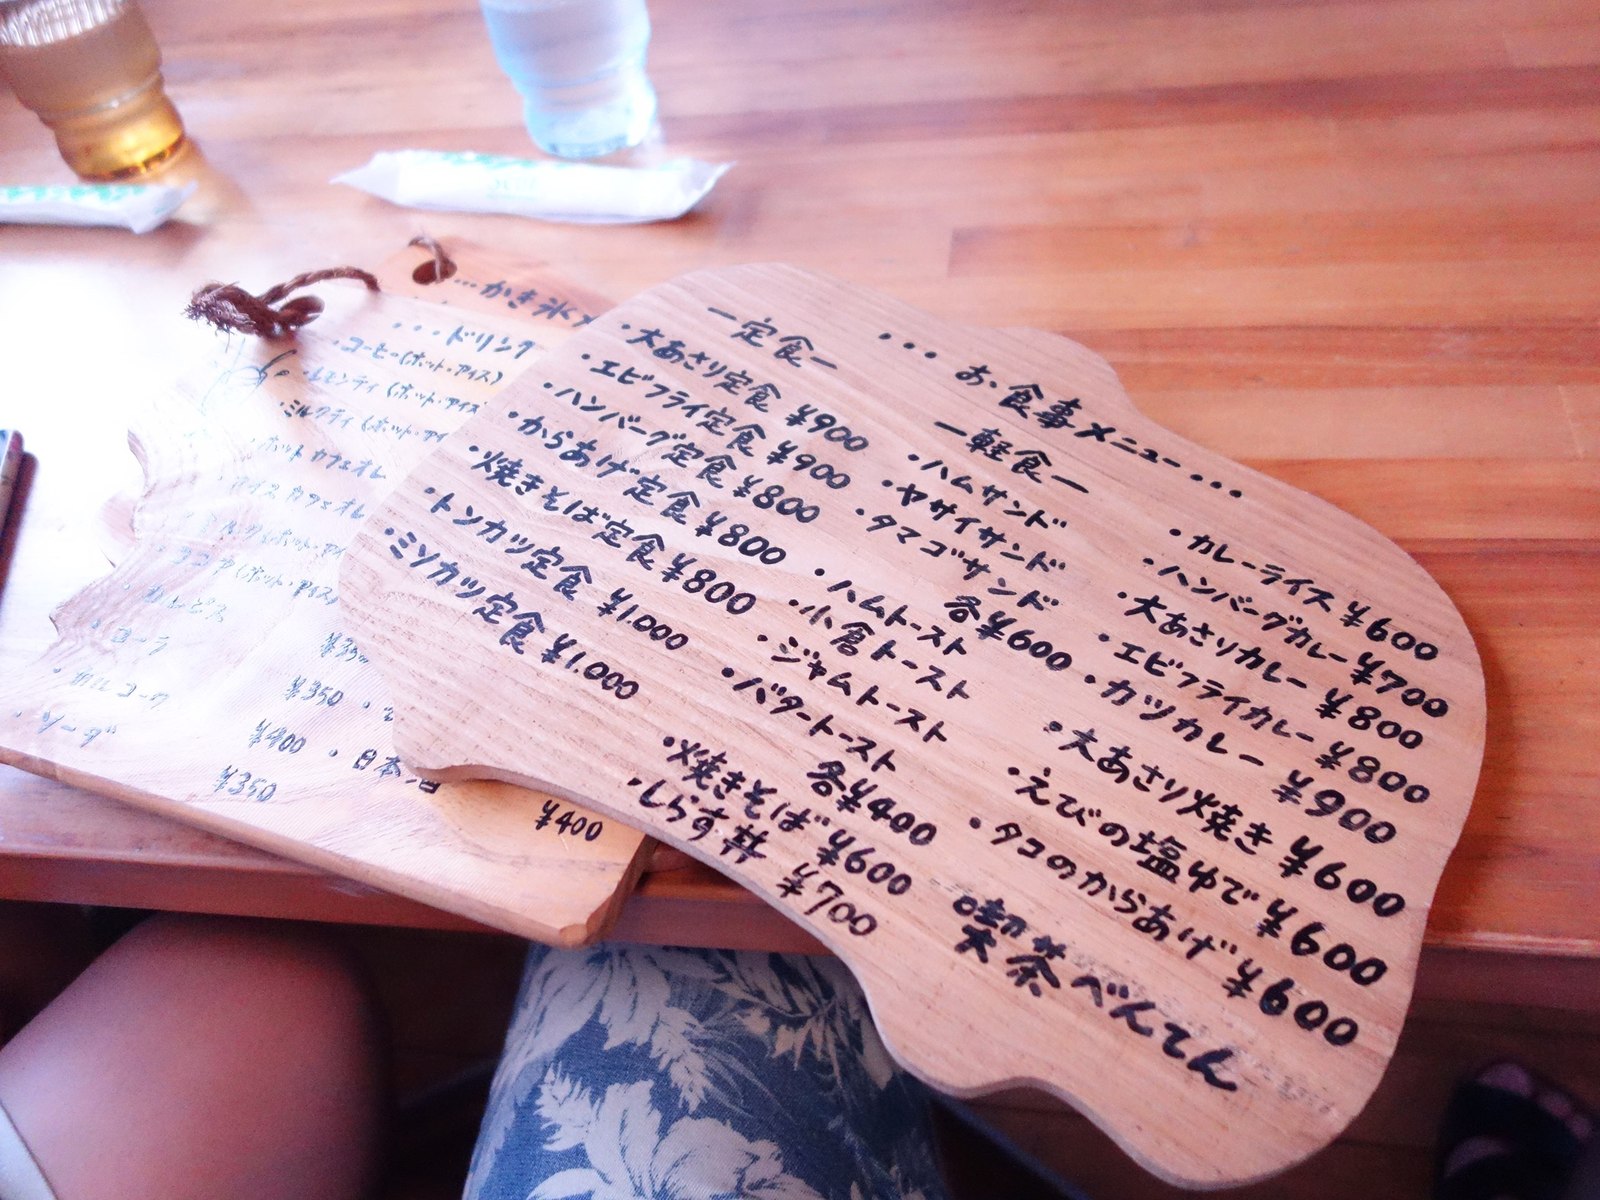 ・・・お食事メニュー・・・
ー定食ー
・大あさり定食 ¥900
・エビフライ定食 ¥900
・ハンバーグ定食 ¥800
・からあげ定食 ¥800
・焼きそば定食 ¥800
・トンカツ定食 ¥1.000
・ミソカツ定食 ¥1.000
ー軽食ー
・ハムサンド
・ヤサイサンド
・タマゴサンド
各¥600
・ハムトースト
・小倉トースト
・ジャムトースト
・バタートースト
各¥400
・焼きそば ¥600
・しらす丼 ¥700
・カレーライス ¥600
・ハンバーグカレー ¥700
・大あさりカレー ¥800
・エビフライカレー ¥800
・カツカレー ¥900
・大あさり焼き ¥600
・えびの塩ゆで ¥600
・タコのからあげ ¥600
喫茶べんてん
・・・かき氷
・・・ドリンク
・コーヒー(ホット・アイス)
・レモンティ(ホット・アイス
・ミルクティ(ホット・アイ
・ホットカフェオレ
・アイスカフェオレ
・ココア(ホット・アイス)
・コーラ
・ビール
¥350
¥400
・日本酒
¥350
¥400